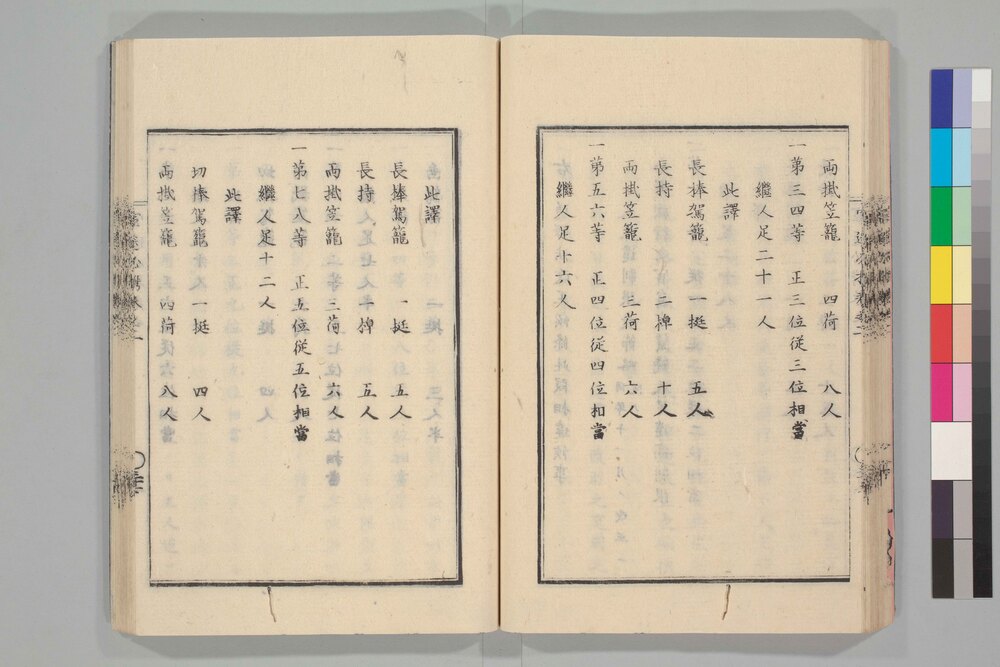 両掛笠籠 四荷 八人
一第三四等 正三位従三位相當
継人足二十一人
此譯
長棒駕籠 一挺 五人
長持 三棹 十人
両掛笠籠 三荷 六人
一第五六等 正四位従四位相當
継人足十六人
此譯
長棒駕籠 一挺 五人
長持 一棹 五人
両掛笠籠 三荷 六人
一第七八等 正五位従五位相當
継人足十二人
此譯
切棒駕籠 一挺 四人
両掛笠籠 四荷 八人